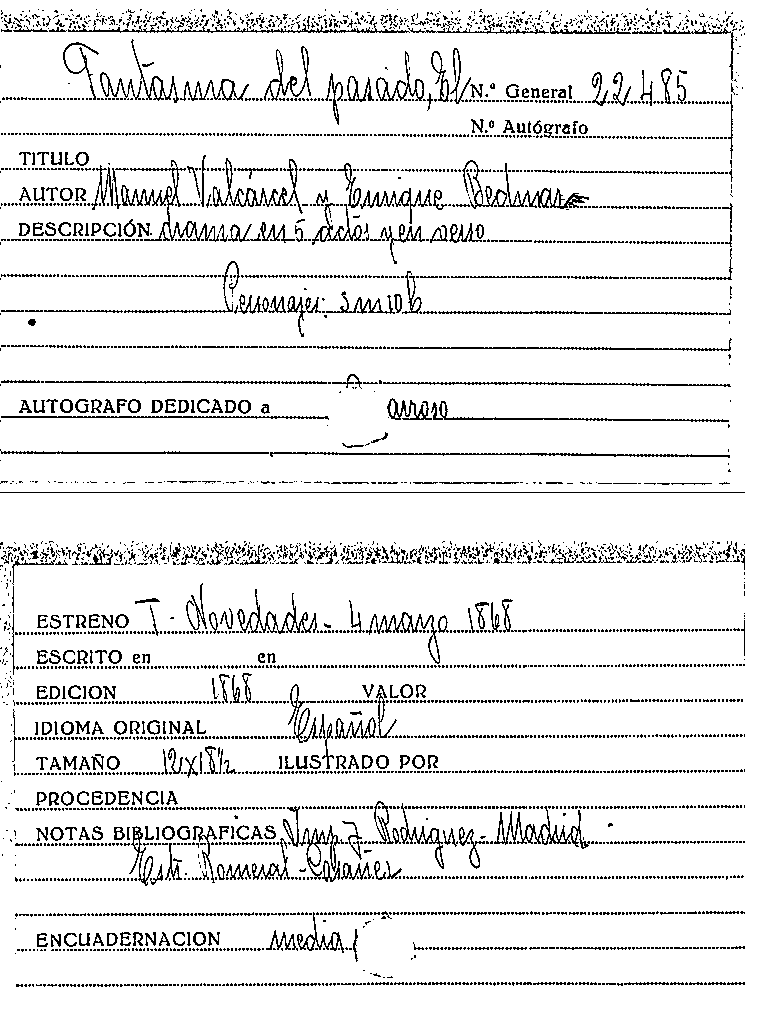 Fantasma del pasado, El N.º General 22485
N.º Autógrafo
TITULO
AUTOR Manuel Valcárcel y Enrique Bedmar
DESCRIPCIÓN drama en 5 actos y en verso
Personajes: 3 m 10 h
AUTOGRAFO DEDICADO a
ESTRENO T. Novedades - 4 marzo 1868
ESCRITO en en
EDICION 1868 VALOR
IDIOMA ORIGINAL Español
TAMAÑO 12x18½ ILUSTRADO POR
PROCEDENCIA
NOTAS BIBLIOGRAFICAS Imp. J. Rodriguez - Madrid
Estr. Romeral - Cabañez
ENCUADERNACION media